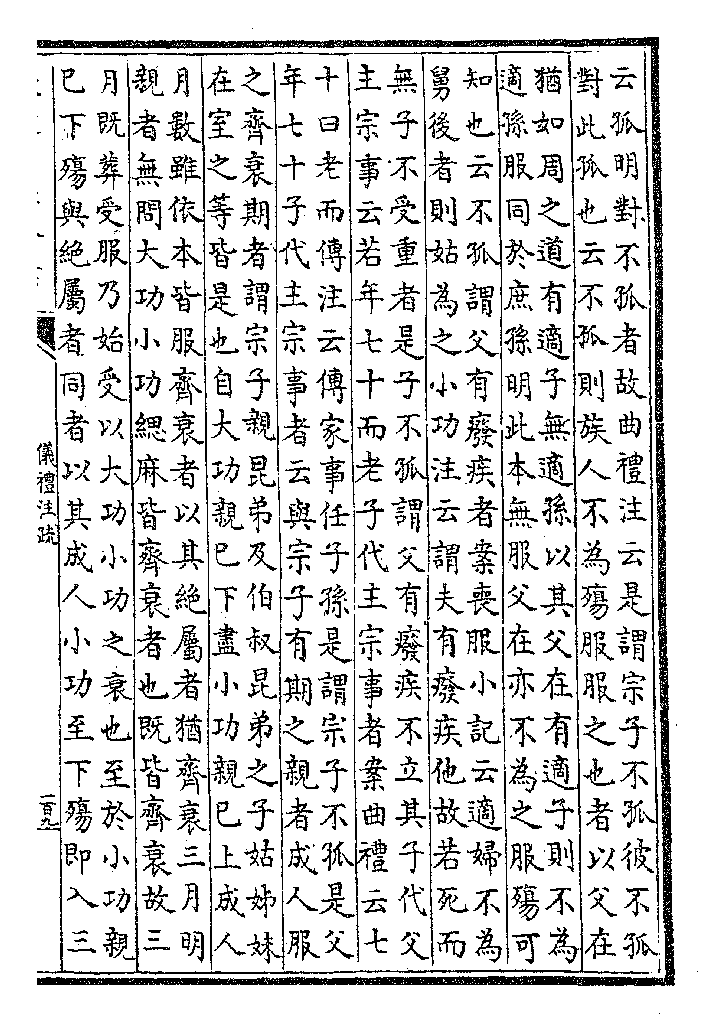 云孤明對不孤者故曲禮注云是謂宗子不孤彼不孤
對此孤也云不孤則族人不為殤服服之也者以父在
猶如周之道有適子無適孫以其父在有適子則不為
適孫服同於庶孫明此本無服父在亦不為之服殤可
知也云不孤謂父有癈疾者案喪服小記云適婦不為
舅後者則姑為之小功注云謂夫有癈疾他故若死而
無子不受重者是子不孤謂父有癈疾不立其子代父
主宗事云若年七十而老子代主宗事者案曲禮云七
十曰老而傳注云傳家事任子孫是謂宗子不孤是父
年七十子代主宗事者云與宗子有期之親者成人服
之齊衰期者謂宗子親昆弟及伯叔昆弟之子姑姊妹
在室之等皆是也自大功親巳下盡小功親巳上成人
月數雖依本皆服齊衰者以其絶屬者猶齊衰三月明
親者無問大功小功緦麻皆齊衰者也既皆齊衰故三
月既葬受服乃始受以大功小功之衰也至於小功親
巳下殤與絶屬者同者以其成人小功至下殤即入三
儀禮注疏
一百九